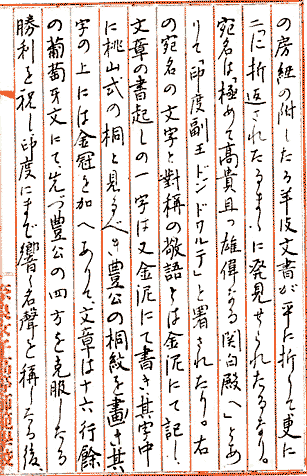 の房紐の附したる羊皮文書が平に折して更に
二に折返されたるまゝに発見せられたるなり。
宛名は「極めて高貴且つ雄偉なる関白殿へ」とあ
りて「印度副王ドンドワルテ」と署されたり。右
の宛名の文字と對稱の敬語とは金泥にて記し、
文章の書起しの一字は又金泥にて書き其字中
に桃山式の桐と見るべき豊公の桐紋を画き其
字の上には金冠を加へありて、文章は十六行餘
の葡萄牙文にて先づ豊公の四方を克服したる
勝利を祝し印度にまで響く名聲を稱したる後